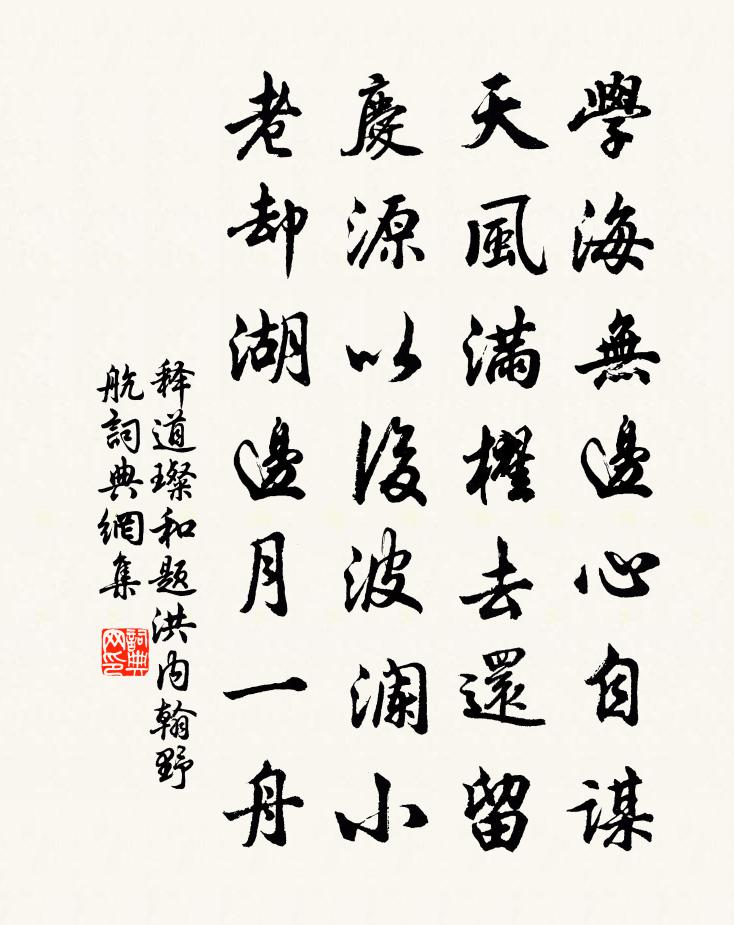 學海無邊心自謀
天風滿櫂去還留
慶源以後波瀾小
老卻湖邊月一舟
释道璨和题洪内翰野
航詞典網集
詞典
网印